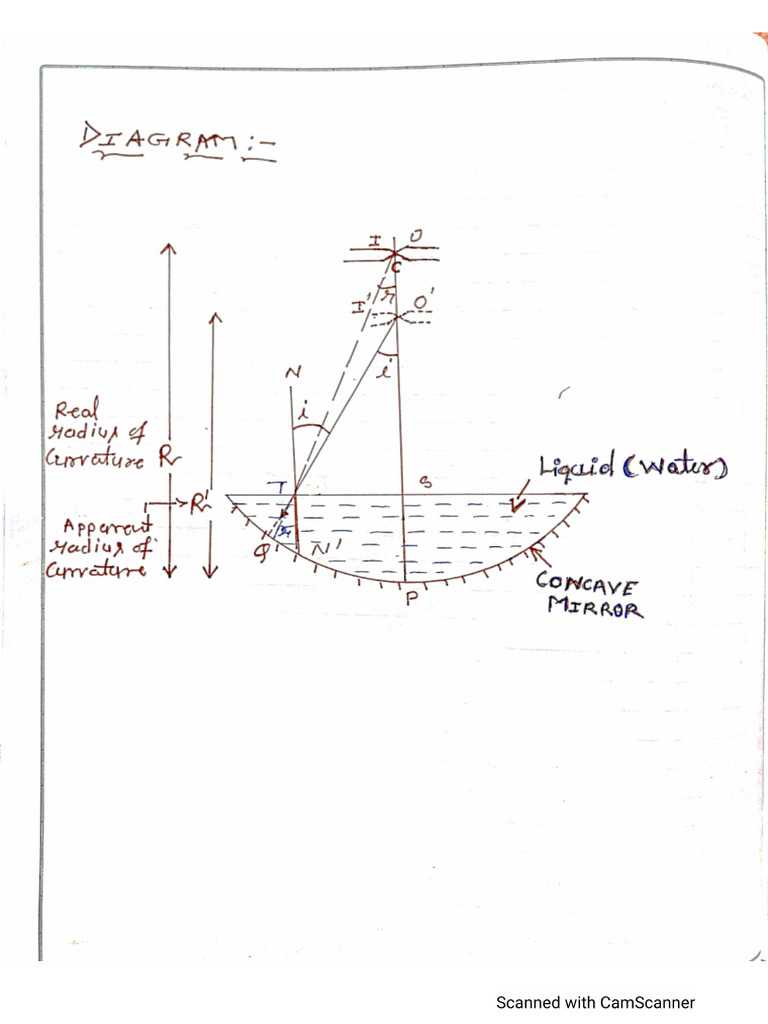 DIAGRAM:-
I O
C
r
I' O'
i
N
i
Real
radius of
Curvature R
T S
Liquid (Water)
R'
Apparent
radius of
Curvature
r
Q N'
P
CONCAVE
MIRROR
Scanned with CamScanner